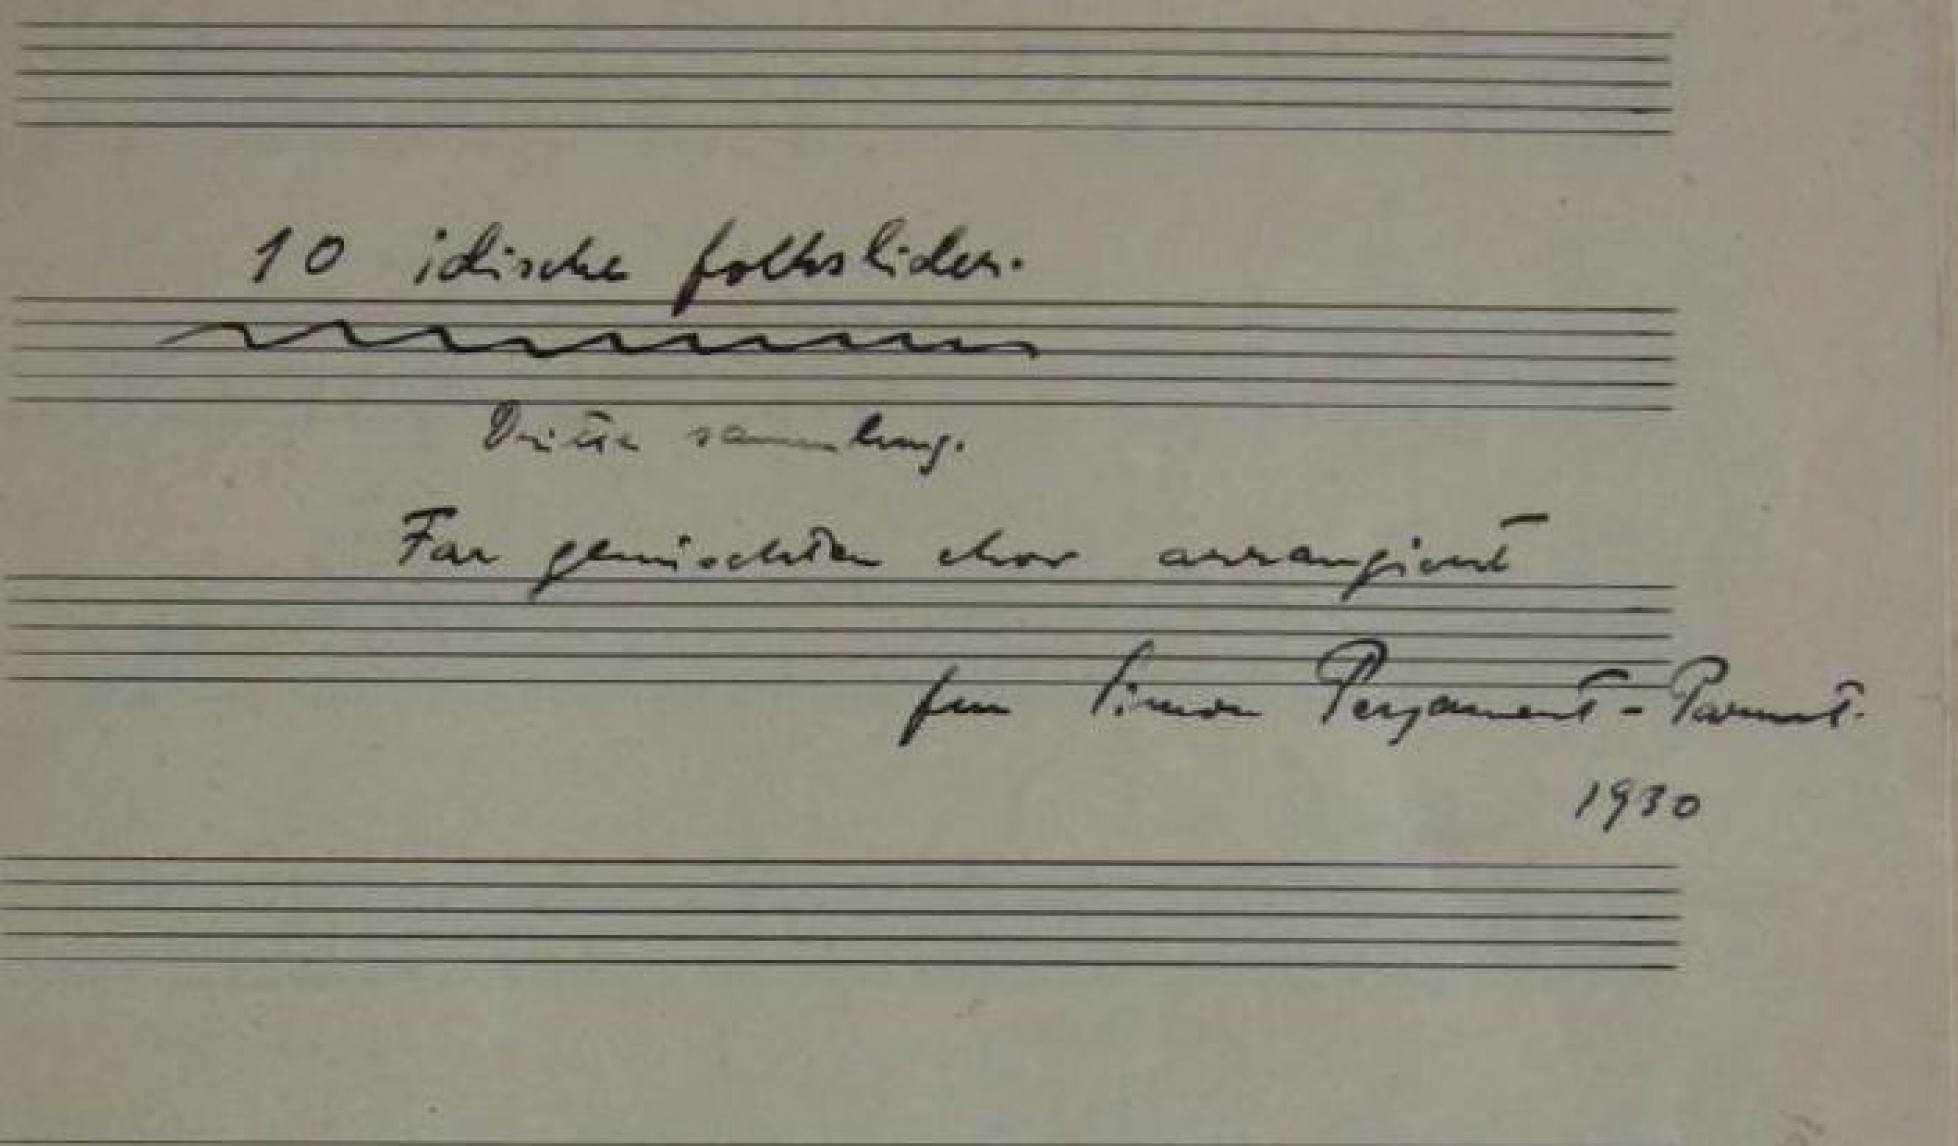 10 idische folkslider.
Dritte sammlung.
Far gemischten chor arrangiert
fun Simon Pergament-Parmet.
1930